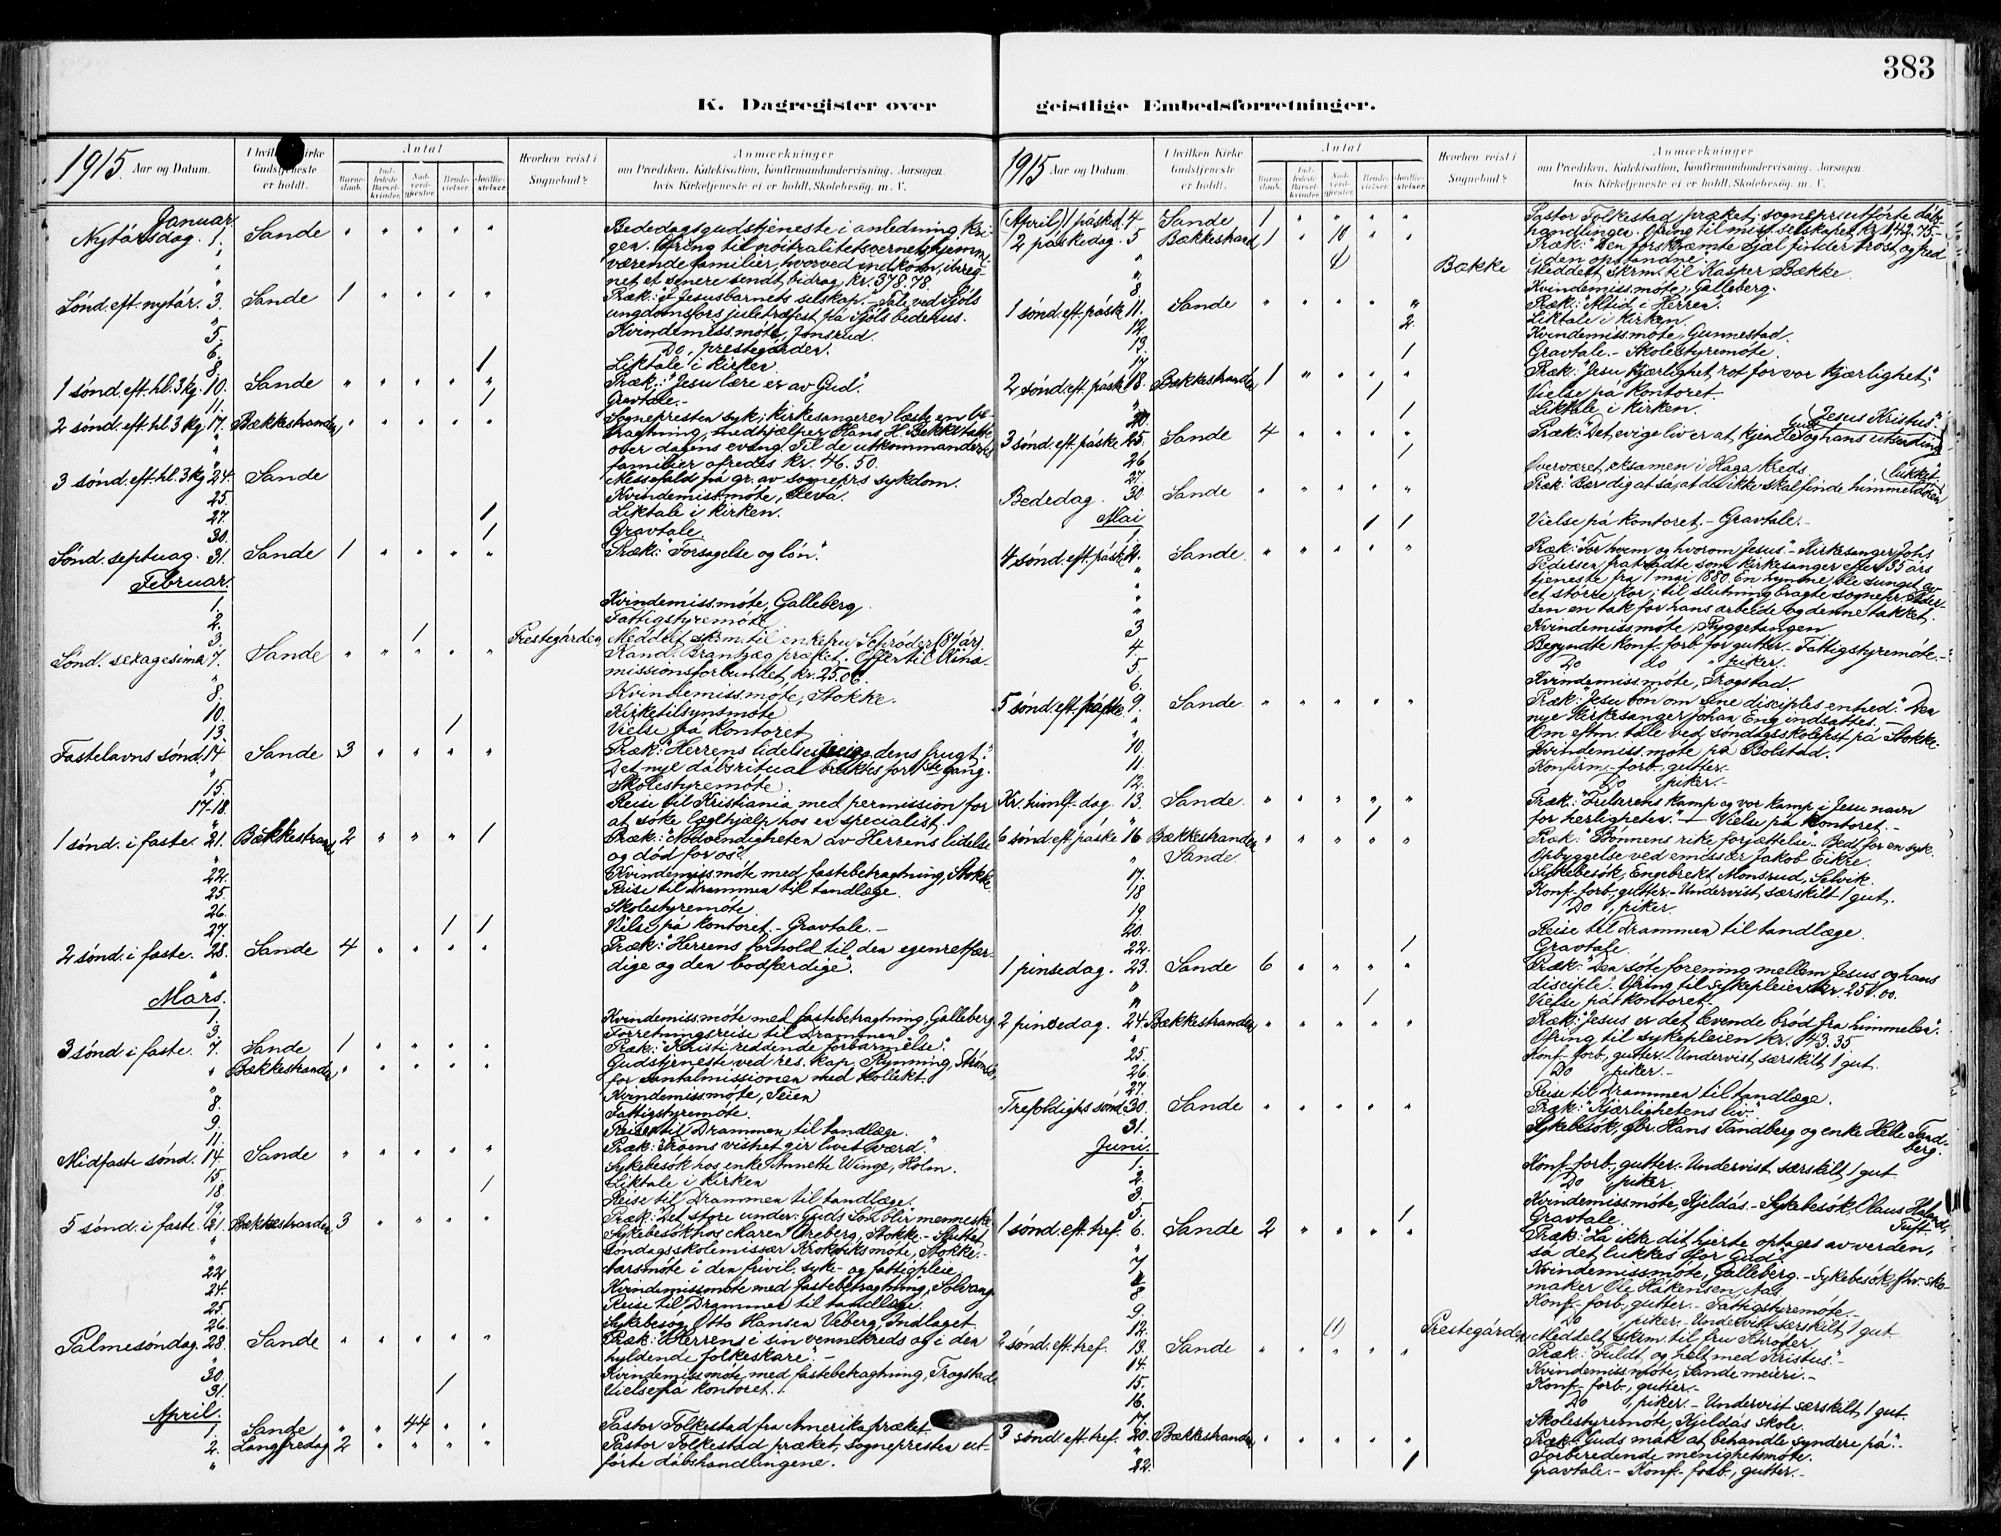 383
K. Dagregister over
geistlige Embedsforretninger.
1915 Aar og Datum.
Gudstjeneste er holdt.
Antal
Hvorhen reist i Sognebud?
Anmærkninger
om Prædiken, Katekisation, Konfirmandundervisning, Aarsagen
hvis Kirketjeneste ei er holdt, Skolebesøg. m. V.
Januar
Nytårsdag. 1. Sande " " " " " Bededagsgudstjeneste i anledning kri-
gen. Ofring til nøitralitetsvernets hjemme-
værende familier, hvorved indkom, ibereg-
net et senere sendt bidrag, kr. 378.78.
Sønd. eft. nytår. 3. Sande 1 " " " " Præk.: "I Jesusbarnets selskap." Tale ved
ungdomsfors juletræfest på bedehus.
5. Kvindemiss.møte, Jonsrud.
6. Do. prestegården.
8. 1 Liktale i kirken
1 sønd. eft. hl. 3 kg. 10. Sande " " " " " Præk.: "Jesu lære er av Gud".
11. 1 Gravtale.-
2 sønd. eft. hl 3 kg 17. Bækkestranden " " " " Sognepresten syk; kirkesangeren læste en be-
tragtning, medhjælper Hans H. Bække talte
over dagens evang. Til de utkommanderdes
familier ofredes kr. 46.50.
3 sønd. eft. hl. 3 kg 24. Sande Messefald på gr. av sogneprs sykdom.
25 Kvindemiss.møte,
27. 1 Liktale i kirken.
30. 1 Gravtale
Sønd. septuag. 31. Sande 1 " " " " Præk.: "Forsagelse og løn."
Februar.
1. Kvindemiss.møte, Galleberg.
2. Fattigstyremøte
3. 1 Prestegården Meddelt skrm. til enkefru Schrøder (84 år).
Sønd. sexagesima 7. Sande " " " " " Kand. Brantzæg præket. Offer til Kina-
missionsforbundet, kr. 25.06.
8. Kvindemiss.møte, Stokke.
10. Kirketilsynsmøte
13. 1 Vielse på kontoret
Fastelavns sønd. 14. Sande 3 " " " " Præk.: "Herrens lidelsesvei og dens frugt."
Det nye dåbsritual bruktes første gang.
15. Skolestyremøte
17-18. Reise til Kristiania med permission for
at søke lægehjælp hos en specialist.
1 sønd. i faste. 21. Bækkestrand 2 " " " 1 Præk.: "Nødvendigheten av Herrens lidelse
og død for os".
22. Kvindemiss.møte med fastebetragtning, Stokke
25. Reise til Drammen til tandlæge.
26. Skolestyremøte
27. 1 1 Vielse på kontoret.- Gravtale.-
2 sønd. i faste. 28. Sande 4 " " " " Præk.: "Herrens forhold til den egenretfær-
dige og den bodfærdige".
Mars.
1. Kvindemiss.møte med fastebetragtning, Galleberg
3. Forretningsreise til Drammen
3 sønd. i faste. 7. Sande 1 " " " " Præk.: "Kristi reddende forbarmelse".
" Bækkestranden " " " " " Gudstjeneste ved res. kap. Rynning, Strømsø,
for santalmissionen med kollekt
8. Kvindemiss.møte, Teien
9. Fattigstyremøte.
11. Reise til Drammen til tandlæge.
Midfaste sønd. 14. Sande " " " " " Præk.: "Troens vished gir livet værd."
15. Sykebesøk hos enke Annette Winge, Holm.
18. 1 Liktale i kirken
19. Reise til Drammen til tandlæge.
5 sønd. i faste 21. Bækkestranden 3 " " " " Præk.: "Det store under: Guds Søn blir menneske
Sykebesøk hos Maren Øreberg, Stokke.-
Søndagsskolemissær Krokviks møte, Stokke.-
22 Aarsmøte i den frivil. syke- og fattigpleie
24. Kvindemissmøte med fastebetragtning, Solvang
25. Reise til Drammen til tandlæge.
26. Sykebesøg Otto Hansen Veberg, Indlaget
Palmesøndag. 28. Sande " " " " " Præk.: "Herrens i sin vennekreds og i den
hyldende folkeskare".-
30. Kvindemiss.møte med fastebetragtning, Trogstad
31. 1 Vielse på kontoret.
April.
1. Sande " " 44 " " Pastor Folkestad fra Amerika præket
2. Langfredag 2 " " " " Pastor Folkestad præket, sognepresten ut-
førte dåbshandlingene.
1915 Aar og Datum.
I hvilken Kirke Gudstjeneste er holdt.
Antal
Hvorhen reist i Sognebud?
Anmærkninger
om Prædiken, Katekisation, Konfirmandundervisning, Aarsagen
hvis Kirketjeneste ei er holdt, Skolebesøg. m. V.
(April) 1 påsked. 4. Sande 1 " " " " Pastor Folkestad præket; sognepr. utførte dåbs-
handlinger. Ofring til miss.selskapet kr. 142.75-
2 påskedag. 5 Bækkestrand 1 " 10 " " Præk.: "Den forskræmte sjæl finder trøst og fred
i den opstandne".
" Bække Meddelt skrm. til Kasper Bække.
8. Kvindemiss.møte, Galleberg.
1 sønd. eft. påsk 11. Sande " " " " " Præk.: "Altid i Herren".
12. 2. Liktale i kirken.
13. Kvindemiss.møte, Gunnestad.
17 1 Gravtale.- Skolestyremøte.
2 sønd. eft. påsk 18. Bækkestranden 1 " " " " Præk.: "Jesu kjærlighet rot for vor kjærlighet."
" 1 Vielse på kontoret.
20. 1 Liktale i kirken.
3 sønd. eft. påske 25. Sande 4 " " " " Præk.: "Det evige liv er at kjende Gud og hans utsending Jesus Kristus".
26. 1
27. Overværet eksamen i Haga kreds
Bededag. 30 Sande " " " " " Præk.: "Bær dig at så, at du ikke skal finde himmeldøren lukket".
Mai
1. 1 1 Vielse på kontoret.- Gravtale.-
4 sønd. eft. påsk. Sande " " " " " Præk.: "For hvem og hvorom Jesus".- Kirkesanger Johs
Pedersen fratrådte som kirkesanger efter 35 års
tjeneste fra 1 mai 1880. En hymne ble sunget av
et større kor; til slutning bragte sognepr.
en tak for hans arbeide og denne takket.
3 Kvindemiss.møte, Ryggetangen
4. Begyndte konf.forb for gutter.- Fattigstyremøte.-
5 Do do " piker.
6. Kvindemiss.møte, Trogstad.
5 sønd. eft. påske 9. Sande " " " " " Præk.: "Jesu bøn om sine disciples enhed." Den
nye kirkesanger Johan Eng indsattes.-
Om eftm. tale ved søndagsskolefest på Stokke.-
10. Kvindemiss.møte på Bolstad.
11. Konfirm.-forb., gutter.-
12. Do piker.-
Kr. himlf. dag. 13. Sande " " " " " Præk.: "Fulsrens kamp og vor kamp i Jesu navn
for herligheten".- 1 Vielse på kontoret.-
6 sønd. eft. påske 16 Bækkestranden " " " " " Præk.: "Bønnens rike forjættelse". Bedt for en syk.
" Sande. Opbyggelse ved emissær Jakob Eikre.
17. Sykebesøk, Engebrekt Monsrud, Selvik.
18 Konf.-forb., gutter.- Undervist særskilt 1 gut.
19 Do , piker.
20. Reise til Drammen til tandlæge.
22. 1 Gravtale
1 pinsedag. 23. Sande 6 " " " " Præk.: "Den søte forening mellem Jesus og hans
disciple". Ofring til sykepleien kr. 251.00.
" 1 Vielse på kontoret.
2 pinsedag. 24. Bækkestranden " " " " " Præk.: "Jesus er det levende brød fra himmelen".
Ofring til sykepleien kr. 43.35
25. Konf.-forb., gutter.- Undervist særskilt 1 gut.
26. Do piker.-
27. Reise til Drammen til tandlæge.
Trefoldighs sønd. 30. Sande " " " " " Præk.: "Kjærlighetens liv".
31. Sykebesøk, gbr. Hans Tandberg og enke Helle Tand-
berg.
Juni.
1. Konf.-forb., gutter.- Undervist særskilt 1 gut
2. Do piker.
3. Kvindemiss.møte, Kjeldås.- Sykebesøk, Olaus
5. 1 Gravtale. Tuft
1 sønd. eft. tref. 6. Sande 2 " " " " Præk.: "La ikke dit hjerte optages av verden,
så det lukkes for Gud".
7 Kvindemiss.møte, Galleberg.- Sykebesøk fhv. sko-
maker Ole Håkensen, Aas.
8 Konf.-forb., gutter.- Fattigstyremøte.-
9. Do piker.- Undervist særskilt 1 gut
12. (1) Prestegården Meddelt skrm. til fru Schrøter.
2 sønd. eft. tref. 13. Sande " " " " Præk.: "Fuldt og helt med Kristus".-
14. Kvindemiss.møte, Sande meieri.-
15. Konf.-forb., gutter.-
16. Do , piker.- Undervist særskilt 1 gut
17. Skolestyremøte, Kjeldås skole.
3 sønd. eft. tref. 20. Bækkestranden " " " " " Præk.: "Guds måte at behandle syndere på".-
" Forberedende menighetsmøte.
22. 1 Gravtale.- Konf.-forb., gutter.-